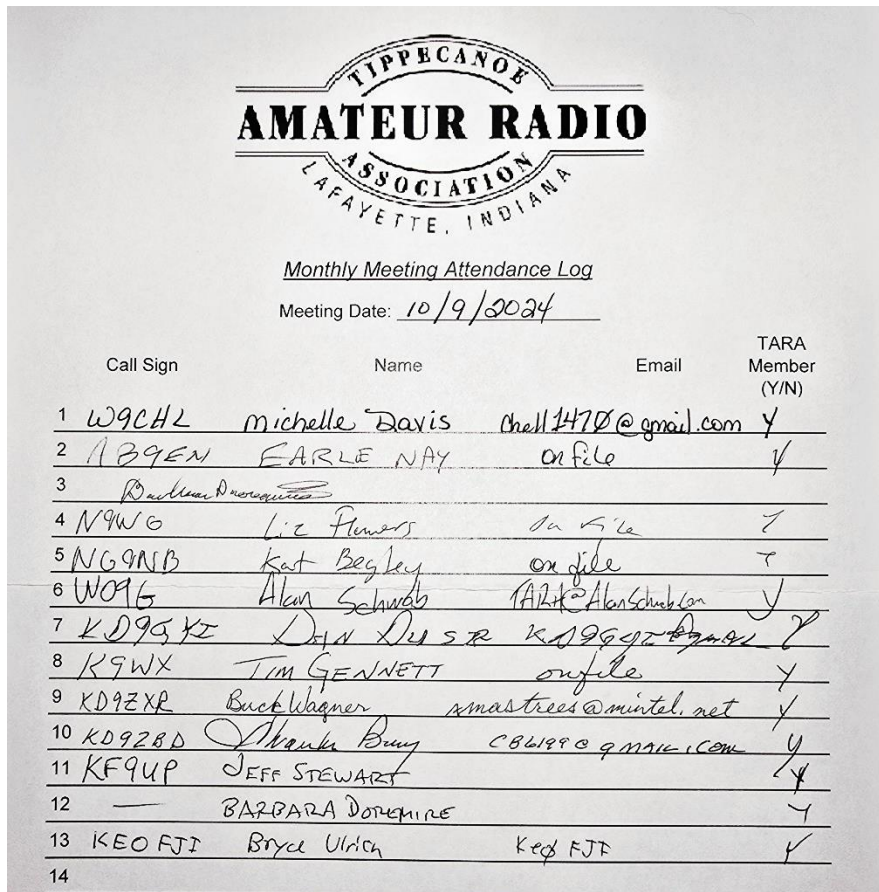 TIPPECANOE
AMATEUR RADIO
ASSOCIATION
LAFAYETTE, INDIANA
Monthly Meeting Attendance Log
Meeting Date: 10/9/2024
Call Sign Name Email TARA Member (Y/N)
1 W9CHL Michelle Davis chell147Ø@gmail.com Y
2 AB9EN EARLE NAY on file Y
3
4 N9WG Liz Flowers on file Y
5 NG9NB Kat Begley on file Y
6 WO9G Alan Schwab Y
7 Y
8 K9WX TIM GENNETT on file Y
9 KD9ZXR Buck Wagner xmastrees@mintel.net Y
10 KD9ZBD Y
11 KF9UP JEFF STEWART Y
12 — BARBARA DOREMIRE Y
13 KE0FJI Bryce Ulrich Y
14